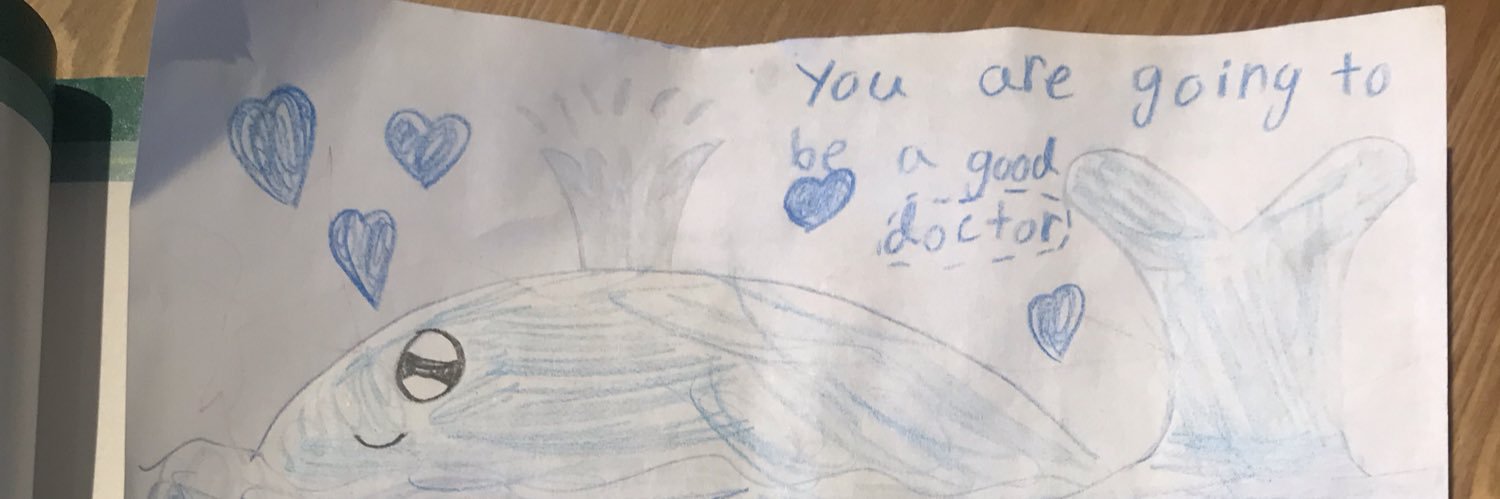 You are going to
be a good
doctor!